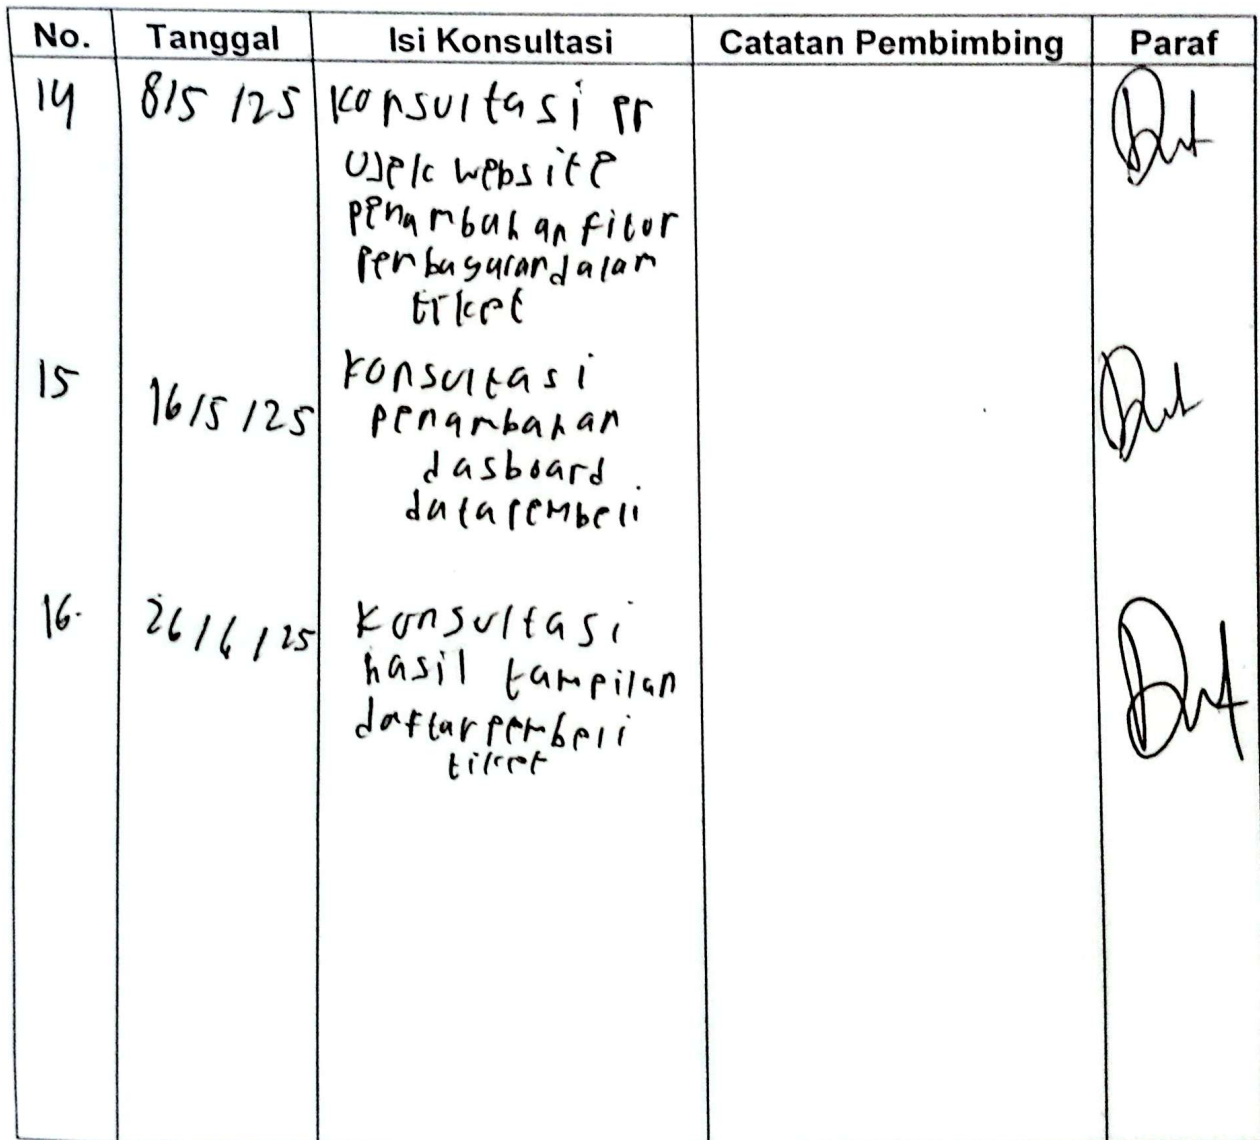 No. Tanggal Isi Konsultasi Catatan Pembimbing Paraf
14 8/5/25 Konsultasi pr
ojek website
penambahan fitur
pembayaran dalam
tiket
15 16/5/25 Konsultasi
penambahan
dasboard
data pembeli
16. 26/6/25 Konsultasi
hasil tampilan
daftar pembeli
tiket